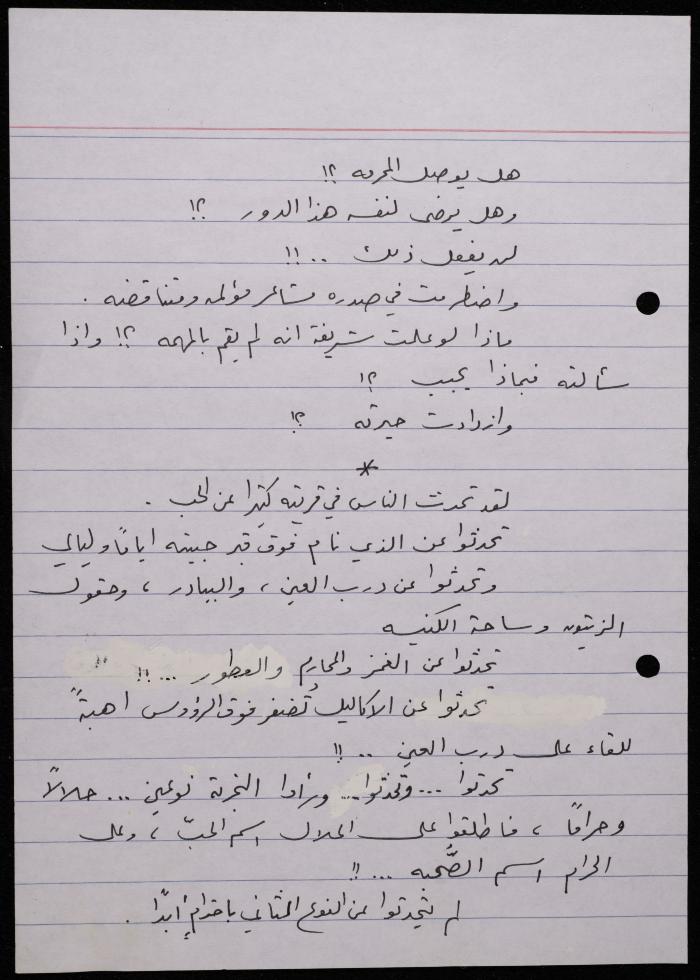 هل يوصل المحرمه ؟!
وهل يرضى لنفسه هذا الدور ؟!
لن يفعل ذلك ..!!
واضطرمت في صدره مشاعر مؤلمه ومتناقضه .
ماذا لو علمت شريفة انه لم يقم بالمهمه ؟! واذا
سألته فبماذا يجيب ؟!
وازدادت حيرته ؟!
*
لقد تحدث الناس في قريته كثيرا عن الحب .
تحدثوا عن الذي نام فوق قبر حبيبته اياماً وليالي
وتحدثوا عن درب العين ، والبيادر ، وحقول
الزيتون وساحة الكنيسه
تحدثوا عن الغمز والمحارم والعطور ...!!
تحدثوا عن الاكاليل تُضفر فوق الرؤوس اهبةً
للقاء على درب العين ..!!
تحدثوا ... وتحدثوا... ورأوا التجربة نوعين ... حلالاً
وحراماً ، فاطلقوا على الحلال اسم الحبّ ، وعلى
الحرام اسم الصُّحبه ...!!
لم يتحدثوا عن النوع الثاني باحترام أبداً .